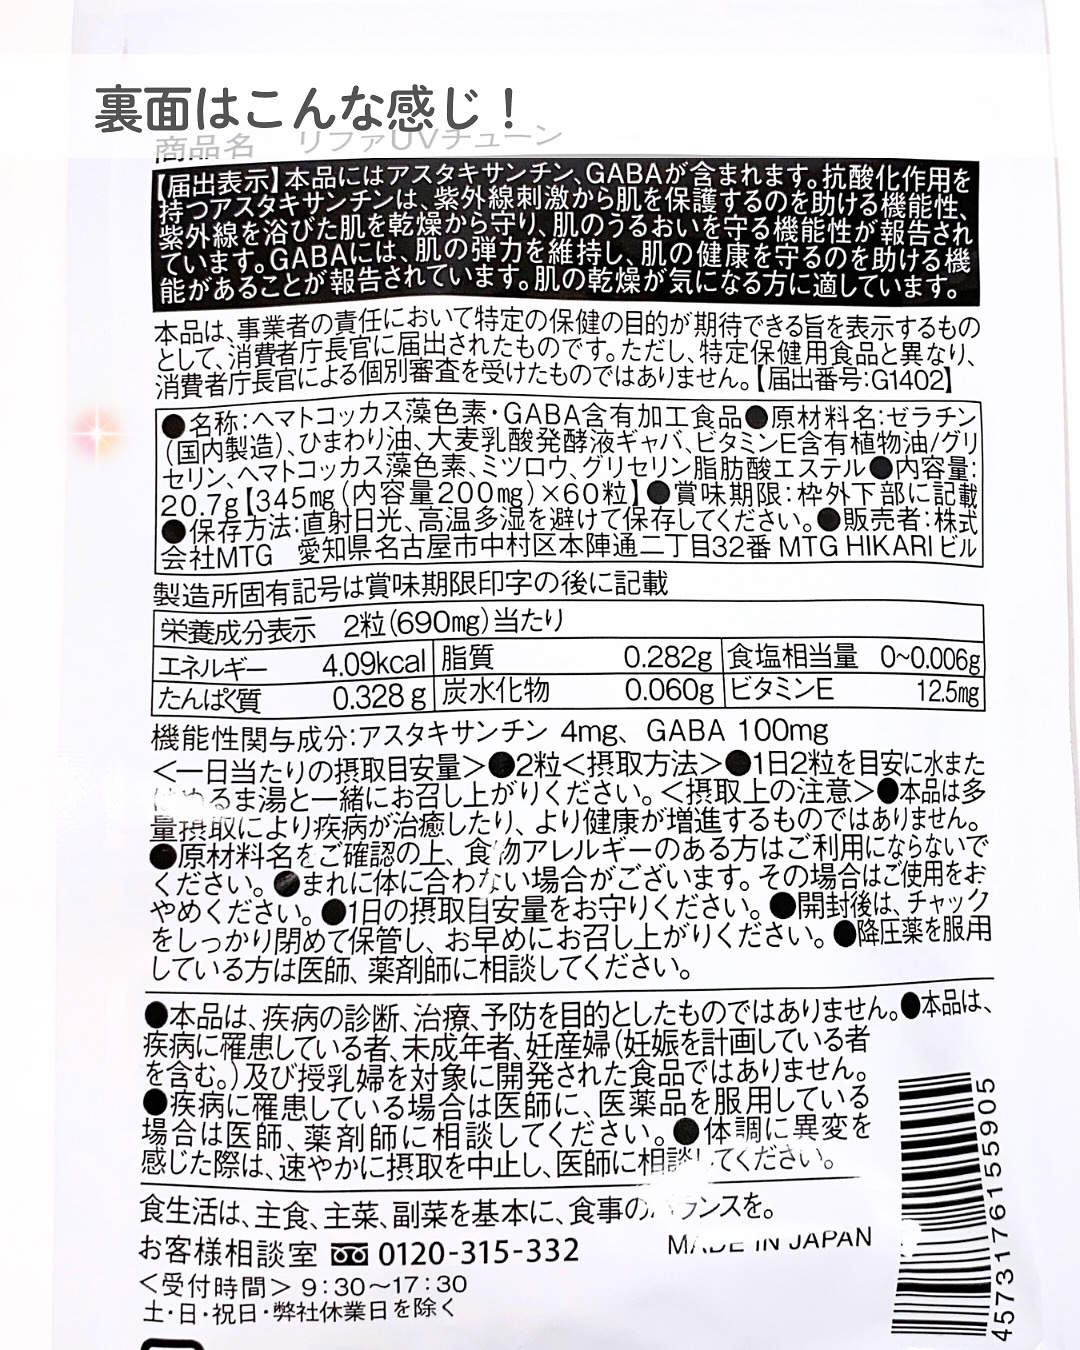 裏面はこんな感じ！
商品名　リファUVチューン
【届出表示】本品にはアスタキサンチン、GABAが含まれます。抗酸化作用を
持つアスタキサンチンは、紫外線刺激から肌を保護するのを助ける機能性、
紫外線を浴びた肌を乾燥から守り、肌のうるおいを守る機能性が報告され
ています。GABAには、肌の弾力を維持し、肌の健康を守るのを助ける機
能があることが報告されています。肌の乾燥が気になる方に適しています。
本品は、事業者の責任において特定の保健の目的が期待できる旨を表示するもの
として、消費者庁長官に届出されたものです。ただし、特定保健用食品と異なり、
消費者庁長官による個別審査を受けたものではありません。【届出番号:G1402】
●名称:ヘマトコッカス藻色素・GABA含有加工食品●原材料名:ゼラチン
(国内製造)、ひまわり油、大麦乳酸発酵液ギャバ、ビタミンE含有植物油/グリ
セリン、ヘマトコッカス藻色素、ミツロウ、グリセリン脂肪酸エステル●内容量:
20.7g【345mg(内容量200mg)×60粒】●賞味期限:枠外下部に記載
●保存方法:直射日光、高温多湿を避けて保存してください。●販売者:株式
会社MTG　愛知県名古屋市中村区本陣通二丁目32番 MTG HIKARIビル
製造所固有記号は賞味期限印字の後に記載
栄養成分表示　2粒(690mg)当たり
エネルギー 4.09kcal 脂質 0.282g 食塩相当量 0~0.006g
たんぱく質 0.328g 炭水化物 0.060g ビタミンE 12.5mg
機能性関与成分:アスタキサンチン 4mg、GABA 100mg
＜一日当たりの摂取目安量＞●2粒＜摂取方法＞●1日2粒を目安に水また
はぬるま湯と一緒にお召し上がりください。＜摂取上の注意＞●本品は多
量摂取により疾病が治癒したり、より健康が増進するものではありません。
●原材料名をご確認の上、食物アレルギーのある方はご利用にならないで
ください。●まれに体に合わない場合がございます。その場合はご使用をお
やめください。●1日の摂取目安量をお守りください。●開封後は、チャック
をしっかり閉めて保管し、お早めにお召し上がりください。●降圧薬を服用
している方は医師、薬剤師に相談してください。
●本品は、疾病の診断、治療、予防を目的としたものではありません。●本品は、
疾病に罹患している者、未成年者、妊産婦(妊娠を計画している者
を含む。)及び授乳婦を対象に開発された食品ではありません。
●疾病に罹患している場合は医師に、医薬品を服用している
場合は医師、薬剤師に相談してください。●体調に異変を
感じた際は、速やかに摂取を中止し、医師に相談してください。
食生活は、主食、主菜、副菜を基本に、食事のバランスを。
お客様相談室 0120-315-332
MADE IN JAPAN
＜受付時間＞9:30〜17:30
土・日・祝日・弊社休業日を除く
4573176155905